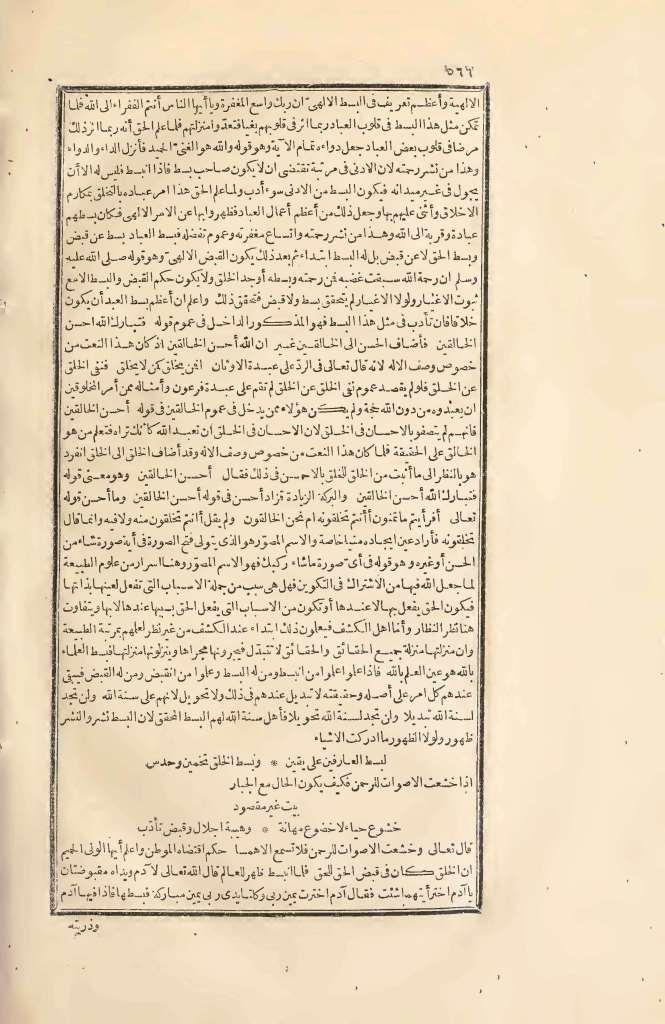 ٥٦٢
الالهية وأعظم تعريف فى البسط الالهىّ ان ربك واسع المغفرة ويا أيها الناس أنتم الفقراء الى الله فلما
تمكن مثل هذا البسط فى قلوب العباد ربما أثر فى قلوبهم بغيا فتعدّوا منزلتهم فلما علم الحق أنه ربما اثر ذلك
مرضا فى قلوب بعض العباد جعل دواءه تمام الآية وهو قوله والله هو الغنىّ الحميد فأنزل الداء والدواء
وهذا من نشر رحمته لان الادنى فى مرتبة تقتضى ان لا يكون صاحب بسط فاذا انبسط فليس له الا أن
يجول فى غير ميدانه فيكون البسط من الادنى سوء أدب ولما علم الحق هذا امر عباده بالتخلق بمكارم
الاخلاق وأثنى عليهم بها وجعل ذلك من أعظم أعمال العباد فظهروا بها عن الامر الالهى فكان بسطهم
عبادة وقربة الى الله وهذا من نشر رحمته واتساع مغفرته وعموم تفضله فبسط العباد بسط عن قبض
وبسط الحق لا عن قبض بل له البسط ابتداء ثم بعد ذلك يكون القبض الالهىّ وهو قوله صلى الله عليه
وسلم ان رحمة الله سبقت غضبه فمن رحمته وبسطه أوجد الخلق ولا يكون حكم القبض والبسط الا مع
ثبوت الاغيار ولولا الاغيار لم يتحقق بسط ولا قبض فتحقق ذلك واعلم ان أعظم بسط العبد أن يكون
خلاقا فان تأدّب فى مثل هذا البسط فهو المذكور الداخل فى عموم قوله فتبارك الله احسن
الخالقين فأضاف الحسن الى الخالقين غير ان الله أحسن الخالقين اذ كان هذا النعت من
خصوص وصف الاله لانه قال تعالى فى الردّ على عبدة الاوثان افمن يخلق كمن لا يخلق فنفى الخلق
عن الخلق فلو لم يقصد عموم نفى الخلق عن الخلق لم تقم على عبدة فرعون وأمثاله ممن أمر المخلوقين
ان يعبدوه من دون الله حجة ولم يكن هؤلاء ممن يدخل فى عموم الخالقين فى قوله أحسن الخالقين
فانهم لم يتصفوا بالاحسان فى الخلق لان الاحسان فى الخلق ان تعبد الله كأنك تراه فتعلم من هو
الخالق على الحقيقة فلما كان هذا النعت من خصوص وصف الاله وقد أضاف الخلق الى الخلق انفرد
هو بالنظر الى ما أثبت من الخلق للخلق بالاحسن فى ذلك فقال أحسن الخالقين وهو معنى قوله
فتبارك الله أحسن الخالقين والبركة الزيادة فزاد أحسن فى قوله أحسن الخالقين وما أحسن قوله
تعالى أفرأيتم ما تمنون أأنتم تخلقونه ام نحن الخالقون ولم يقل أأنتم تخلقون منه ولا فيه وانما قال
تخلقونه فأراد عين ايجاده منيا خاصة والاسم المصوّر هو الذى يتولى فتح الصورة فى أية صورة شاء من
الحسن أو غيره وهو قوله فى أىّ صورة ما شاء ركبك فهو الاسم المصوّر وهنا اسرار من علوم الطبيعة
لما جعل الله فيها من الاشتراك فى التكوين فهل هى سبب من جملة الاسباب التى تفعل لعينها بذاتها
فيكون الحق يفعل بها لا عندها أو تكون من الاسباب التى يفعل الحق بسببها عندها لا بها ويتفاوت
هنا نظر النظار وأما اهل الكشف فيعلمون ذلك ابتداء عند الكشف من غير نظر لعلمهم بمرتبة الطبيعة
وان منزلتها منزلة جميع الحقائق والحقائق لا تتبدّل فيجرونها مجراها وينزلونها منزلتها فبسط العلماء
بالله هو عين العلم بالله فاذا علموا علموا من انبسط ومن له البسط وعلموا من انقبض ومن له القبض فيبقى
عندهم كل امر على أصله وحقيقته لا تبديل عندهم فى ذلك ولا تحويل لانهم على سنة الله ولن تجد
لسنة الله تبديلا ولن تجد لسنة الله تحويلا فأهل سنة الله لهم البسط المحقق لان البسط نشر والنشر
ظهور ولولا الظهور ما ادركت الاشياء
لبسط العارفين على يقين * وبسط الخلق تخمين وحدس
اذا خشعت الاصوات للرحمن فكيف يكون الحال مع الجبار
بيت غير مقصود
خشوع حياء لا خضوع مهانة * وهيبة اجلال وقبض تأدّب
قال تعالى وخشعت الاصوات للرحمن فلا تسمع الا همسا حكم اقتضاه الموطن واعلم أيها الولى الحميم
ان الخلق كان فى قبض الحق للحق فلما انبسط ظهر للعالم قال الله تعالى لآدم ويداه مقبوضتان
يا آدم اختر أيتهما شئت فقال آدم اخترت يمين ربى وكلتا يدى ربى يمين مباركة فبسطها فاذا فيها آدم
وذريته